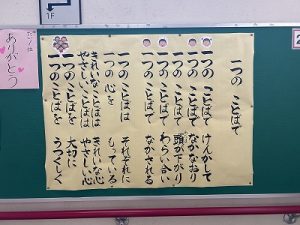 1F
ありがとう
一つのことばで
一つのことばで けんかして
一つのことばで なかなおり
一つのことばで 頭が下がり
一つのことばで わらい合い
一つのことばで なかされる
一つのことばは それぞれに
一つの心を もっている
きれいなことばは きれいな心
やさしいことばは やさしい心
一つのことばを 大切に
一つのことばを うつくしく